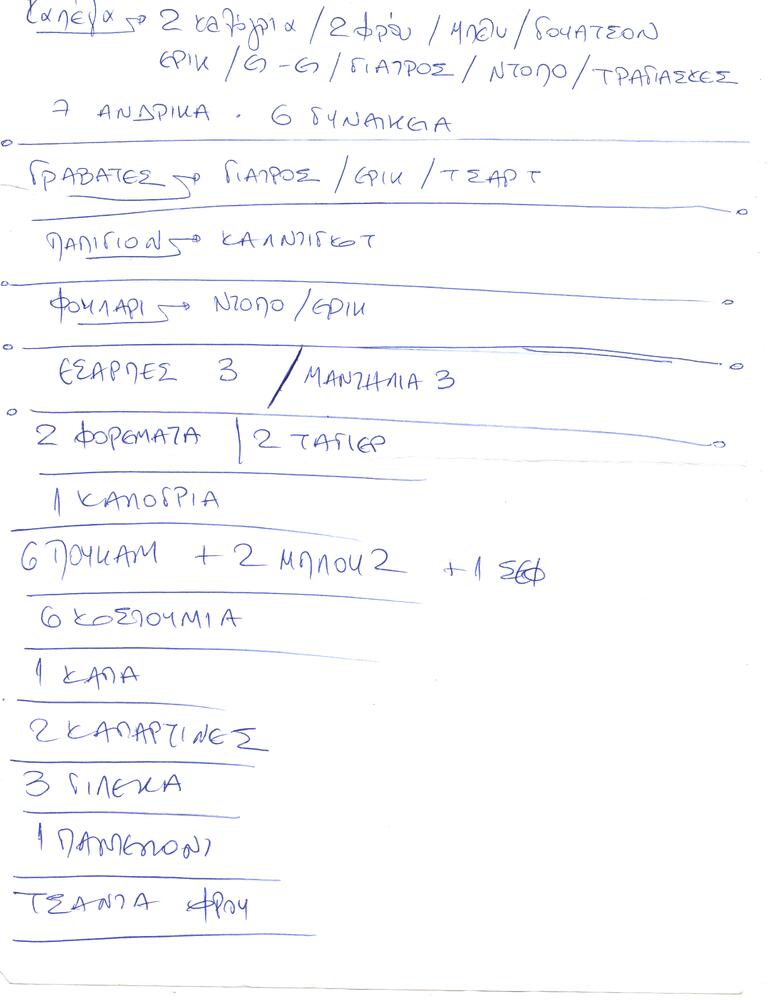 Καπέλα → 2 καλόγρια / 2 φρου / Μπλου / ΓΟΥΑΤΣΟΝ
ΕΡΙΚ / G-G / ΓΙΑΤΡΟΣ / ΝΤΟΠΟ / ΤΡΑΓΙΑΣΚΕΣ
7 ΑΝΔΡΙΚΑ . 6 ΓΥΝΑΙΚΕΙΑ
ΓΡΑΒΑΤΕΣ → ΓΙΑΤΡΟΣ / ΕΡΙΚ / ΤΣΑΡΤ
ΠΑΠΙΓΙΟΝ → ΚΑΛΝΤΙΓΚΟΤ
ΦΟΥΛΑΡΙ → ΝΤΟΠΟ / ΕΡΙΚ
ΕΣΑΡΠΕΣ 3 / ΜΑΝΤΗΛΙΑ 3
2 ΦΟΡΕΜΑΤΑ | 2 ΤΑΓΙΕΡ
1 ΚΑΛΟΓΡΙΑ
6 ΠΟΥΚΑΜ + 2 ΜΠΛΟΥΖ + 1 ΣΕΦ
6 ΚΟΣΤΟΥΜΙΑ
1 ΚΑΠΑ
2 ΚΑΠΑΡΤΙΝΕΣ
3 ΓΙΛΕΚΑ
1 ΠΑΝΤΕΛΟΝΙ
ΤΣΑΝΤΑ ΦΡΟΥ